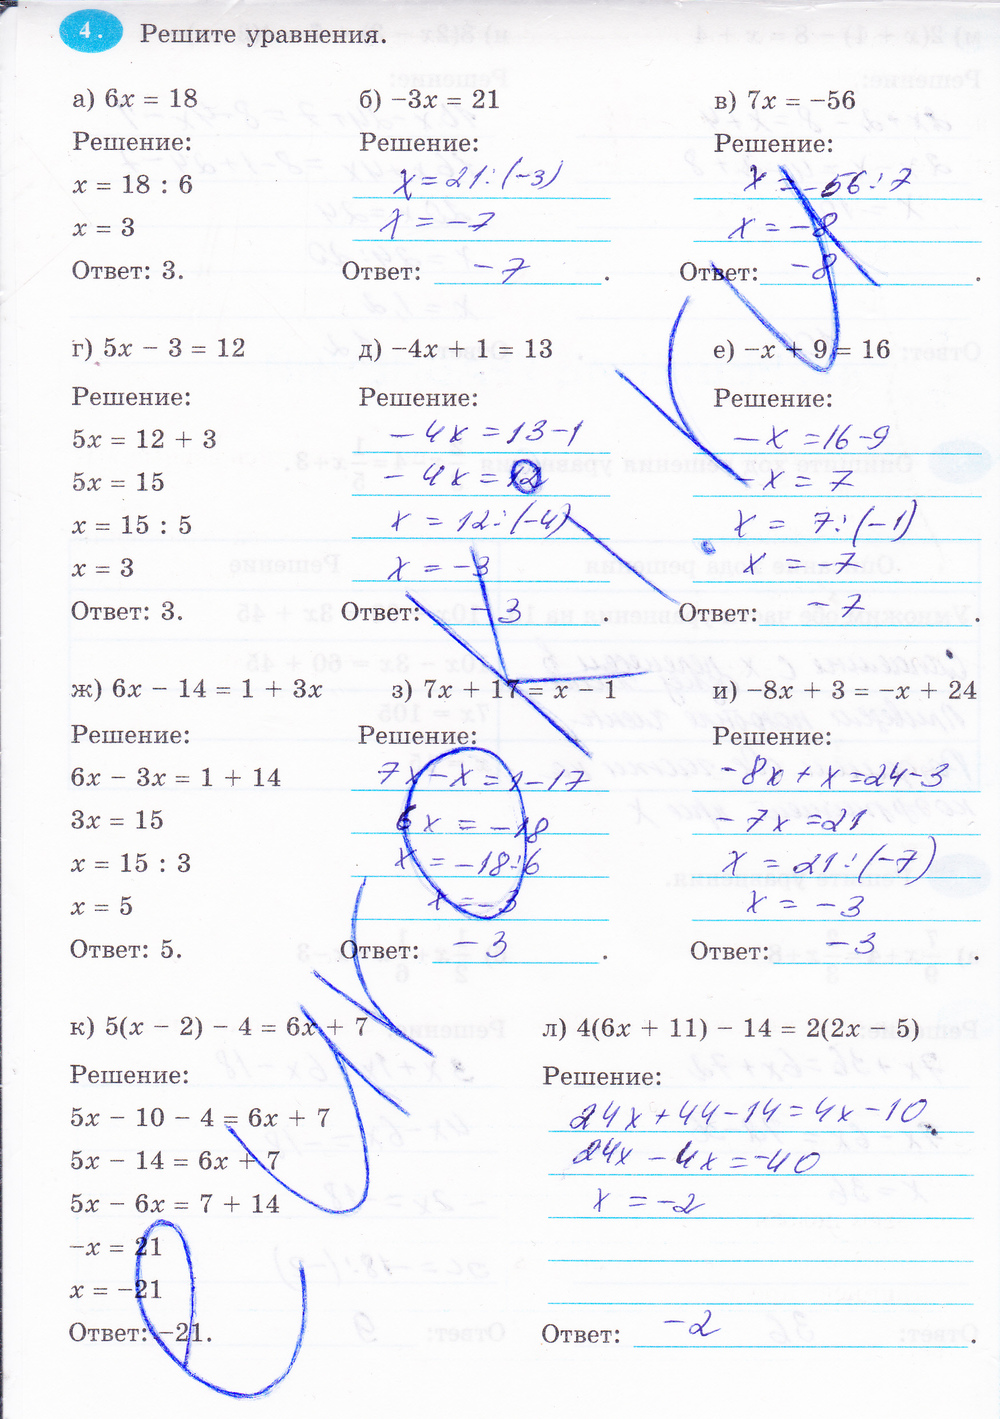 4. Решите уравнения.
а) 6x = 18
Решение:
x = 18 : 6
x = 3
Ответ: 3.
б) −3x = 21
Решение:
x = 21 : (−3)
x = −7
Ответ: −7.
в) 7x = −56
Решение:
x = −56 : 7
x = −8
Ответ: −8.
г) 5x − 3 = 12
Решение:
5x = 12 + 3
5x = 15
x = 15 : 5
x = 3
Ответ: 3.
д) −4x + 1 = 13
Решение:
−4x = 13−1
−4x = 12
x = 12 : (−4)
x = −3
Ответ: −3.
е) −x + 9 = 16
Решение:
−x = 16−9
−x = 7
x = 7 : (−1)
x = −7
Ответ: −7.
ж) 6x − 14 = 1 + 3x
Решение:
6x − 3x = 1 + 14
3x = 15
x = 15 : 3
x = 5
Ответ: 5.
з) 7x + 17 = x − 1
Решение:
7x − x = 1−17
6x = −18
x = −18 : 6
x = −3
Ответ: −3.
и) −8x + 3 = −x + 24
Решение:
−8x + x = 24−3
−7x = 21
x = 21 : (−7)
x = −3
Ответ: −3.
к) 5(x − 2) − 4 = 6x + 7
Решение:
5x − 10 − 4 = 6x + 7
5x − 14 = 6x + 7
5x − 6x = 7 + 14
−x = 21
x = −21
Ответ: −21.
л) 4(6x + 11) − 14 = 2(2x − 5)
Решение:
24x + 44 − 14 = 4x − 10
24x − 4x = −40
x = −2
Ответ: −2.